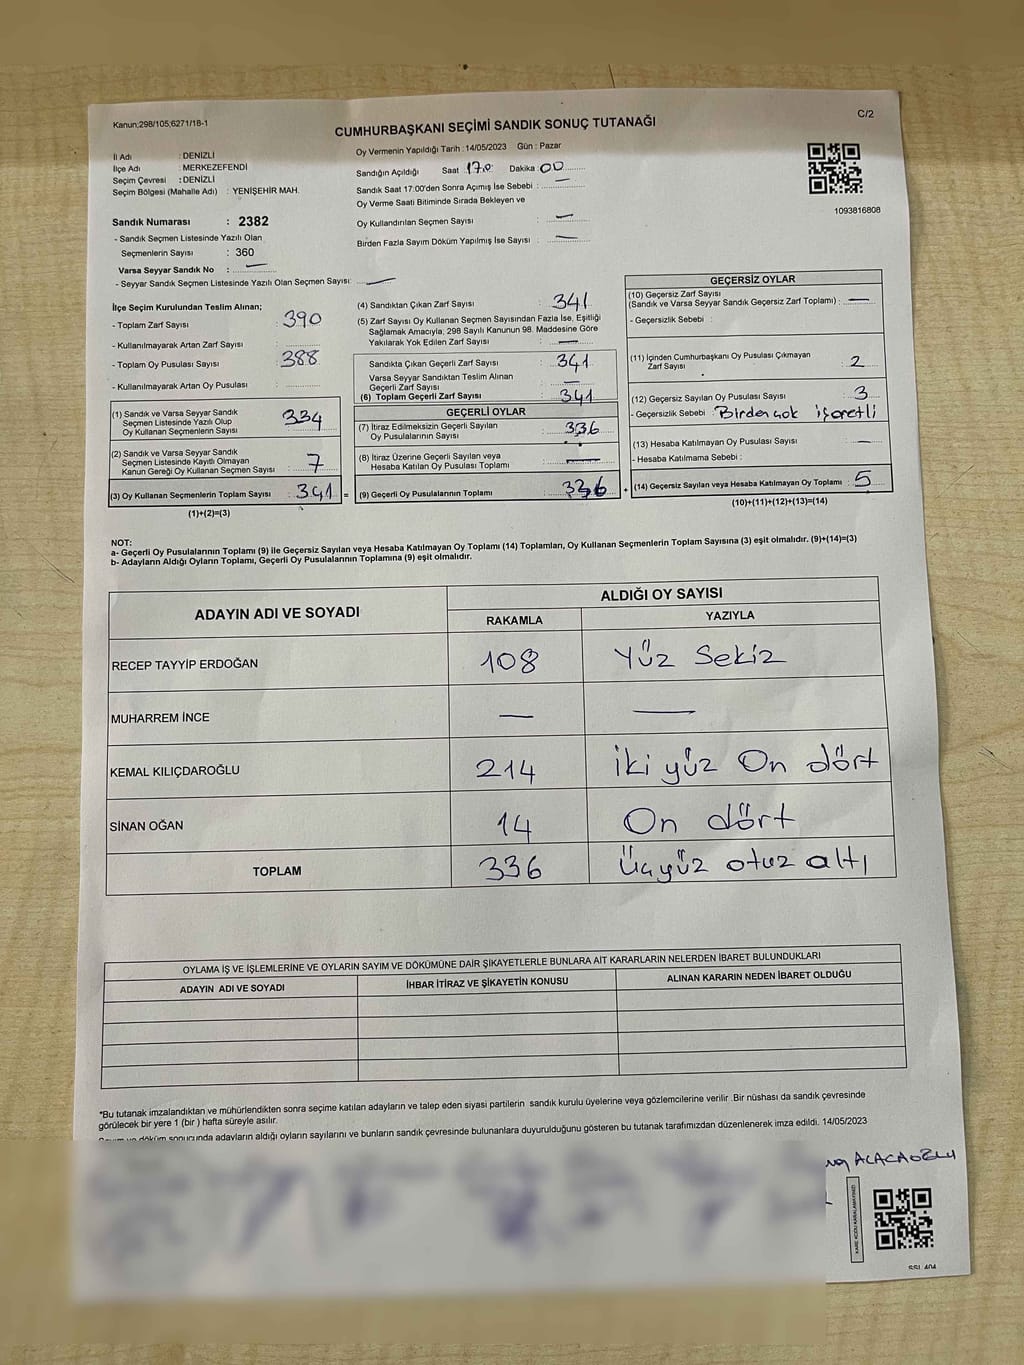 Kanun;298/105;6271/18-1
C/2
CUMHURBAŞKANI SEÇİMİ SANDIK SONUÇ TUTANAĞI
İl Adı : DENİZLİ
İlçe Adı : MERKEZEFENDİ
Seçim Çevresi : DENİZLİ
Seçim Bölgesi (Mahalle Adı) : YENİŞEHİR MAH.
Sandık Numarası : 2382
- Sandık Seçmen Listesinde Yazılı Olan
Seçmenlerin Sayısı : 360
Varsa Seyyar Sandık No : —
- Seyyar Sandık Seçmen Listesinde Yazılı Olan Seçmen Sayısı: —
Oy Vermenin Yapıldığı Tarih : 14/05/2023 Gün : Pazar
Sandığın Açıldığı Saat 17.0 Dakika : 00
Sandık Saat 17:00'den Sonra Açımış İse Sebebi : —
Oy Verme Saati Bitiminde Sırada Bekleyen ve
Oy Kullandırılan Seçmen Sayısı : —
Birden Fazla Sayım Döküm Yapılmış İse Sayısı : —
1093816808
İlçe Seçim Kurulundan Teslim Alınan;
- Toplam Zarf Sayısı : 390
- Kullanılmayarak Artan Zarf Sayısı :
- Toplam Oy Pusulası Sayısı : 388
- Kullanılmayarak Artan Oy Pusulası :
(1) Sandık ve Varsa Seyyar Sandık
Seçmen Listesinde Yazılı Olup
Oy Kullanan Seçmenlerin Sayısı : 334
(2) Sandık ve Varsa Seyyar Sandık
Seçmen Listesinde Kayıtlı Olmayan
Kanun Gereği Oy Kullanan Seçmen Sayısı : 7
(3) Oy Kullanan Seçmenlerin Toplam Sayısı : 341 =
(1)+(2)=(3)
(4) Sandıktan Çıkan Zarf Sayısı : 341
(5) Zarf Sayısı Oy Kullanan Seçmen Sayısından Fazla İse, Eşitliği
Sağlamak Amacıyla, 298 Sayılı Kanunun 98. Maddesine Göre
Yakılarak Yok Edilen Zarf Sayısı : —
Sandıkta Çıkan Geçerli Zarf Sayısı : 341
Varsa Seyyar Sandıktan Teslim Alınan
Geçerli Zarf Sayısı : —
(6) Toplam Geçerli Zarf Sayısı : 341
GEÇERLİ OYLAR
(7) İtiraz Edilmeksizin Geçerli Sayılan
Oy Pusulalarının Sayısı : 336
(8) İtiraz Üzerine Geçerli Sayılan veya
Hesaba Katılan Oy Pusulası Toplamı : —
(9) Geçerli Oy Pusulalarının Toplamı : 336 +
GEÇERSİZ OYLAR
(10) Geçersiz Zarf Sayısı
(Sandık ve Varsa Seyyar Sandık Geçersiz Zarf Toplamı) : —
- Geçersizlik Sebebi :
(11) İçinden Cumhurbaşkanı Oy Pusulası Çıkmayan
Zarf Sayısı : 2
(12) Geçersiz Sayılan Oy Pusulası Sayısı : 3
- Geçersizlik Sebebi : Birden çok işaretli
(13) Hesaba Katılmayan Oy Pusulası Sayısı : —
- Hesaba Katılmama Sebebi :
(14) Geçersiz Sayılan veya Hesaba Katılmayan Oy Toplamı : 5
(10)+(11)+(12)+(13)=(14)
NOT:
a- Geçerli Oy Pusulalarının Toplamı (9) ile Geçersiz Sayılan veya Hesaba Katılmayan Oy Toplamı (14) Toplamları, Oy Kullanan Seçmenlerin Toplam Sayısına (3) eşit olmalıdır. (9)+(14)=(3)
b- Adayların Aldığı Oyların Toplamı, Geçerli Oy Pusulalarının Toplamına (9) eşit olmalıdır.
ADAYIN ADI VE SOYADI
ALDIĞI OY SAYISI
RAKAMLA YAZIYLA
RECEP TAYYİP ERDOĞAN 108 Yüz Sekiz
MUHARREM İNCE — —
KEMAL KILIÇDAROĞLU 214 iki yüz On dört
SİNAN OĞAN 14 On dört
TOPLAM 336 Üçyüz otuz altı
OYLAMA İŞ VE İŞLEMLERİNE VE OYLARIN SAYIM VE DÖKÜMÜNE DAİR ŞİKAYETLERLE BUNLARA AİT KARARLARIN NELERDEN İBARET BULUNDUKLARI
ADAYIN ADI VE SOYADI İHBAR İTİRAZ VE ŞİKAYETİN KONUSU ALINAN KARARIN NEDEN İBARET OLDUĞU
*Bu tutanak imzalandıktan ve mühürlendikten sonra seçime katılan adayların ve talep eden siyasi partilerin sandık kurulu üyelerine veya gözlemcilerine verilir .Bir nüshası da sandık çevresinde
görülecek bir yere 1 (bir ) hafta süreyle asılır.
Sayım ve döküm sonucunda adayların aldığı oyların sayılarını ve bunların sandık çevresinde bulunanlara duyurulduğunu gösteren bu tutanak tarafımızdan düzenlenerek imza edildi. 14/05/2023